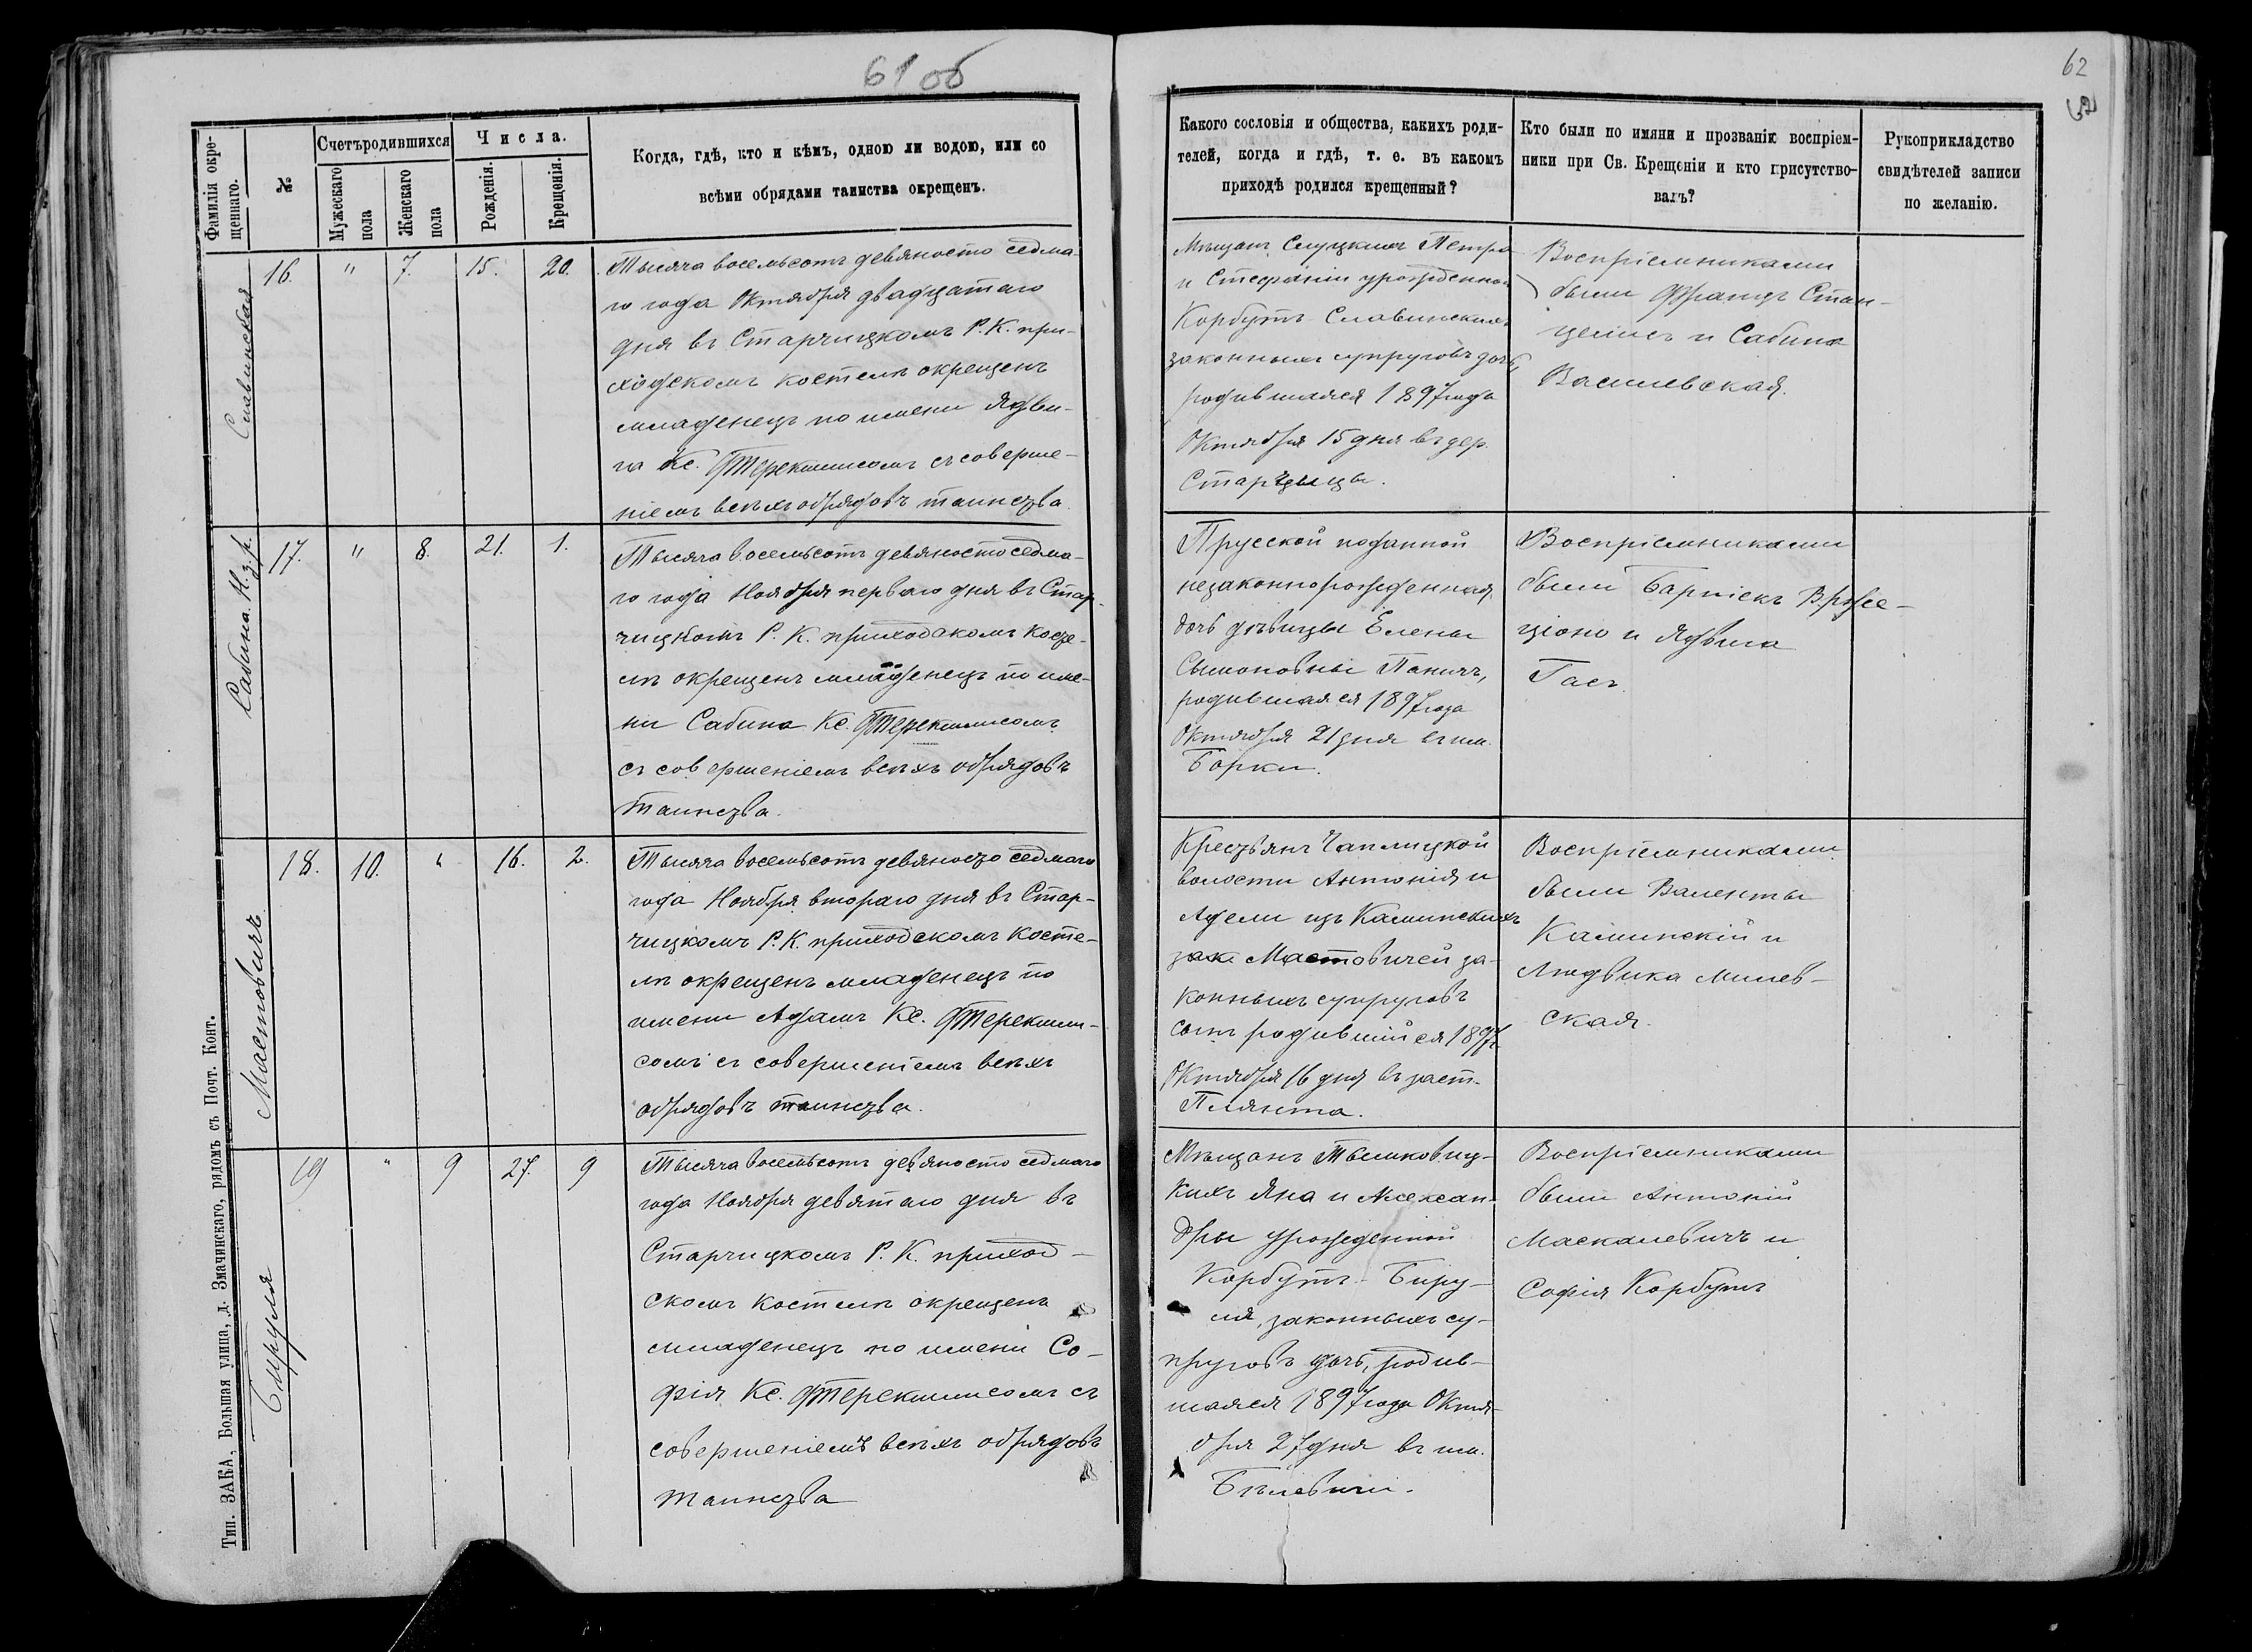 61 об
62
Фамилія окре-
щеннаго.
№
Счетъ родившихся
Мужескаго
пола
Женскаго
пола
Числа.
Рожденія.
Крещенія.
Когда, гдѣ, кто и кѣмъ, одною ли водою, или со
всѣми обрядами таинства окрещенъ.
Какого сословія и общества, какихъ роди-
телей, когда и гдѣ, т. е. въ какомъ
приходѣ родился крещенный?
Кто были по имяни и прозванію воспріем-
ники при Св. Крещеніи и кто присутство-
валъ?
Рукоприкладство
свидѣтелей записи
по желанію.
Славинская
16. " 7. 15. 20.
Тысяча восемьсотъ девяносто седма-
го года Октября двадцатаго
дня въ Старчицкомъ Р. К. при-
ходскомъ костелѣ окрещенъ
младенецъ по имени Ядви-
га Кс. Фтерекшисомъ съ соверше-
ніемъ всѣхъ обрядовъ таинства.
Мѣщанъ Слуцкихъ Петра
и Стефаніи урожденной
Корбутъ Славинскихъ
законныхъ супруговъ дочь,
родившаяся 1897 года
Октября 15 дня въ дер.
Старчицы.
Воспріемниками
были Францъ Стан-
целисъ и Сабина
Василевская.
Сабина Н. з. р.
17. " 8. 21. 1.
Тысяча восемьсотъ девяносто седма-
го года Ноября перваго дня въ Стар-
чицкомъ Р. К. приходскомъ косте-
лѣ окрещенъ младенецъ по име-
ни Сабина Кс. Фтерекшисомъ
съ совершеніемъ всѣхъ обрядовъ
таинства.
Прусской подданной
незаконнорожденная
дочь дѣвицы Елены
Сымоновны Паничъ,
родившаяся 1897 года
Октября 21 дня въ им.
Борки.
Воспріемниками
были Вржее-
ціоно и Ядвига
Гасъ.
Мастовичъ
18. 10. " 16. 2.
Тысяча восемьсотъ девяносто седмаго
года Ноября втораго дня въ Стар-
чицкомъ Р. К. приходскомъ косте-
лѣ окрещенъ младенецъ по
имени Адамъ Кс. Фтерекши-
сомъ съ совершеніемъ всѣхъ
обрядовъ таинства.
Крестьянъ Чаплицкой
волости Антонія и
Адели изъ Каминскихъ
зак Мастовичей за-
конныхъ супруговъ
сынъ родившійся 1897 г.
Октября 16 дня въ заст.
Плянта.
Воспріемниками
были Валенты
Каминскій и
Людвика Милев-
ская.
Бируля
19 " 9 27. 9
Тысяча восемьсотъ девяносто седмаго
года Ноября девятаго дня въ
Старчицкомъ Р. К. приход-
скомъ костелѣ окрещенъ
младенецъ по имени Со-
фія Кс. Фтерекшисомъ съ
совершеніемъ всѣхъ обрядовъ
таинства
Мѣщанъ Тымковиц-
кихъ Яна и Алексан-
дры урожденной
Корбутъ - Биру-
ля, законныхъ су-
пруговъ дочь, родив-
шаяся 1897 года Октя-
бря 27 дня въ им.
Бѣлевичи.
Воспріемниками
были Антоній
Маскалевичъ и
Софія Корбутъ
Тип. ЗАКА, Большая улица, д. Змачинскаго, рядомъ съ Почт. Конт.